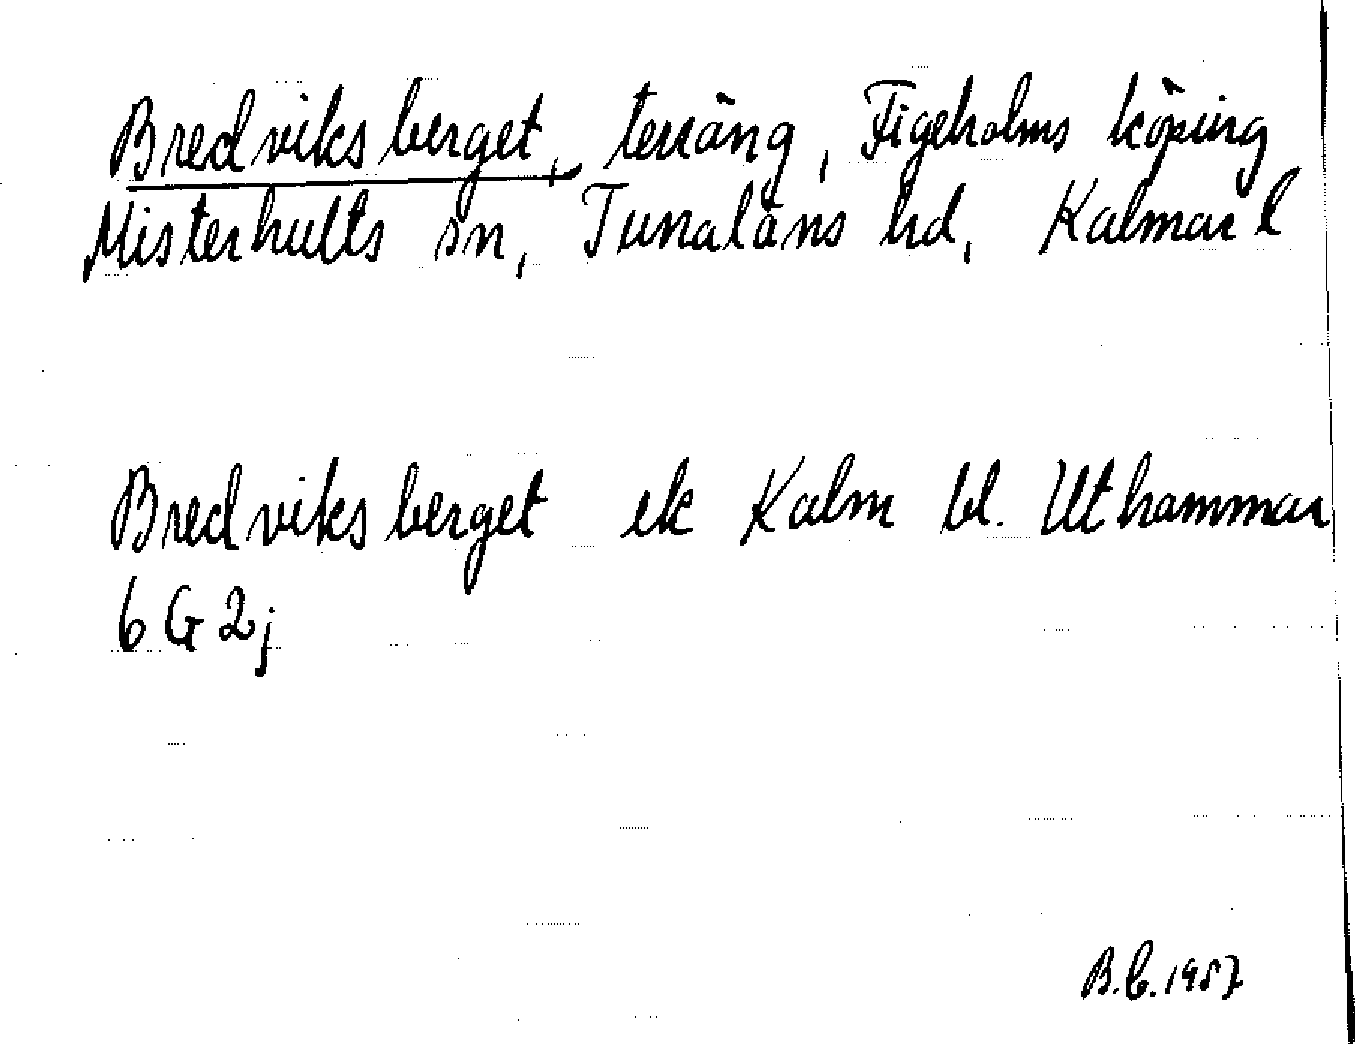 Bredviksberget, terräng, Figeholms köping
Misterhults sn, Tunaläns hd, Kalmar l
Bredviksberget ek Kalm bl. Uthammar
6G2j